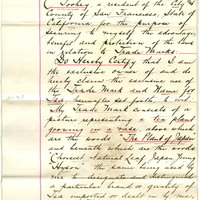 C. Tookey, a resident of the City &
County of San Francisco, State of
California for the purpose of
securing to myself the advantage
benefit and protection of the laws
in relation to Trade Marks.
Do Hereby Certify that I am
the exclusive owner of and do
hereby claim the exclusive use of
the Trade Mark and Name for
Tea hereinafter set forth to wit:
My Trade Mark consists of a
picture representing a tea plant
growing in a vase above which
are the words "The Plant of Japan"
and beneath which are the words
Choicest Natural Leaf Japan Young
Hyson the same being used by
me to designate and distinguish
a particular brand or quality of
Tea imported or dealt in by me,